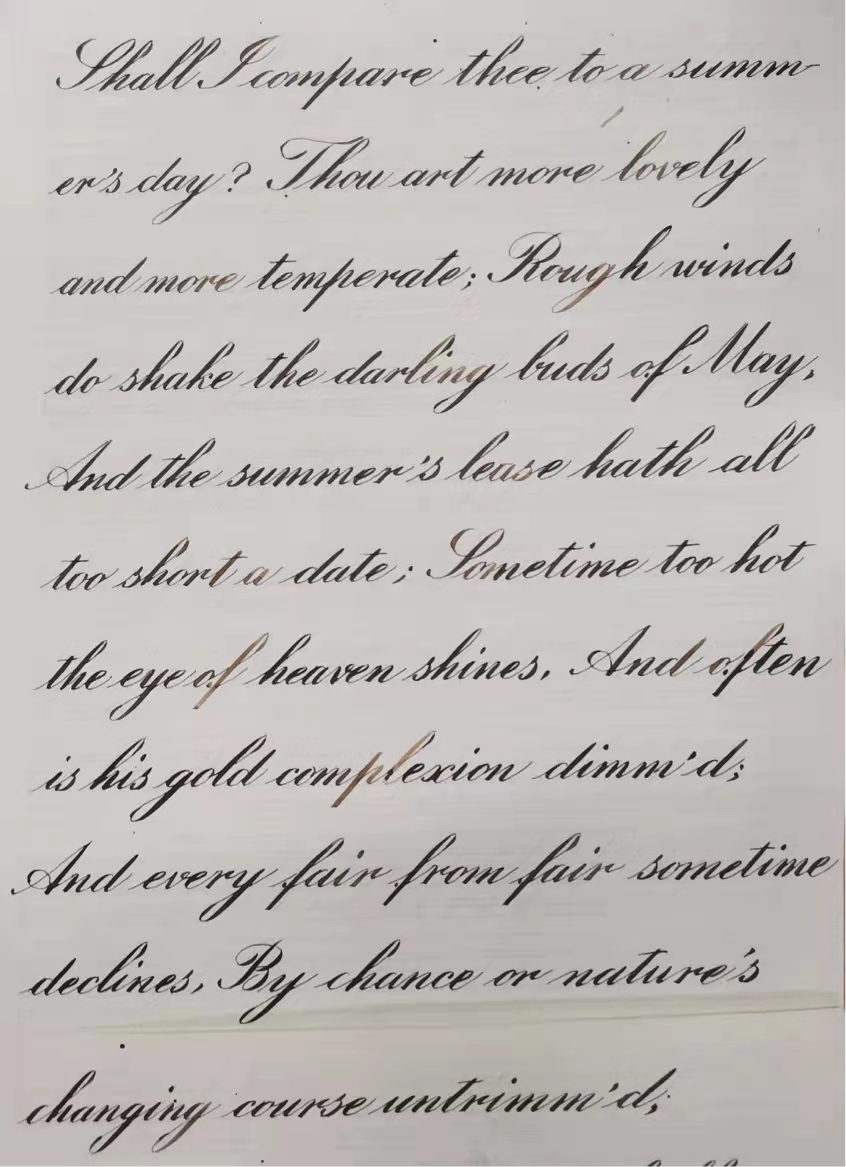 Shall I compare thee to a summ-
er's day? Thou art more lovely
and more temperate; Rough winds
do shake the darling buds of May,
And the summer's lease hath all
too short a date; Sometime too hot
the eye of heaven shines, And often
is his gold complexion dimm'd;
And every fair from fair sometime
declines, By chance or nature's
changing course untrimm'd;